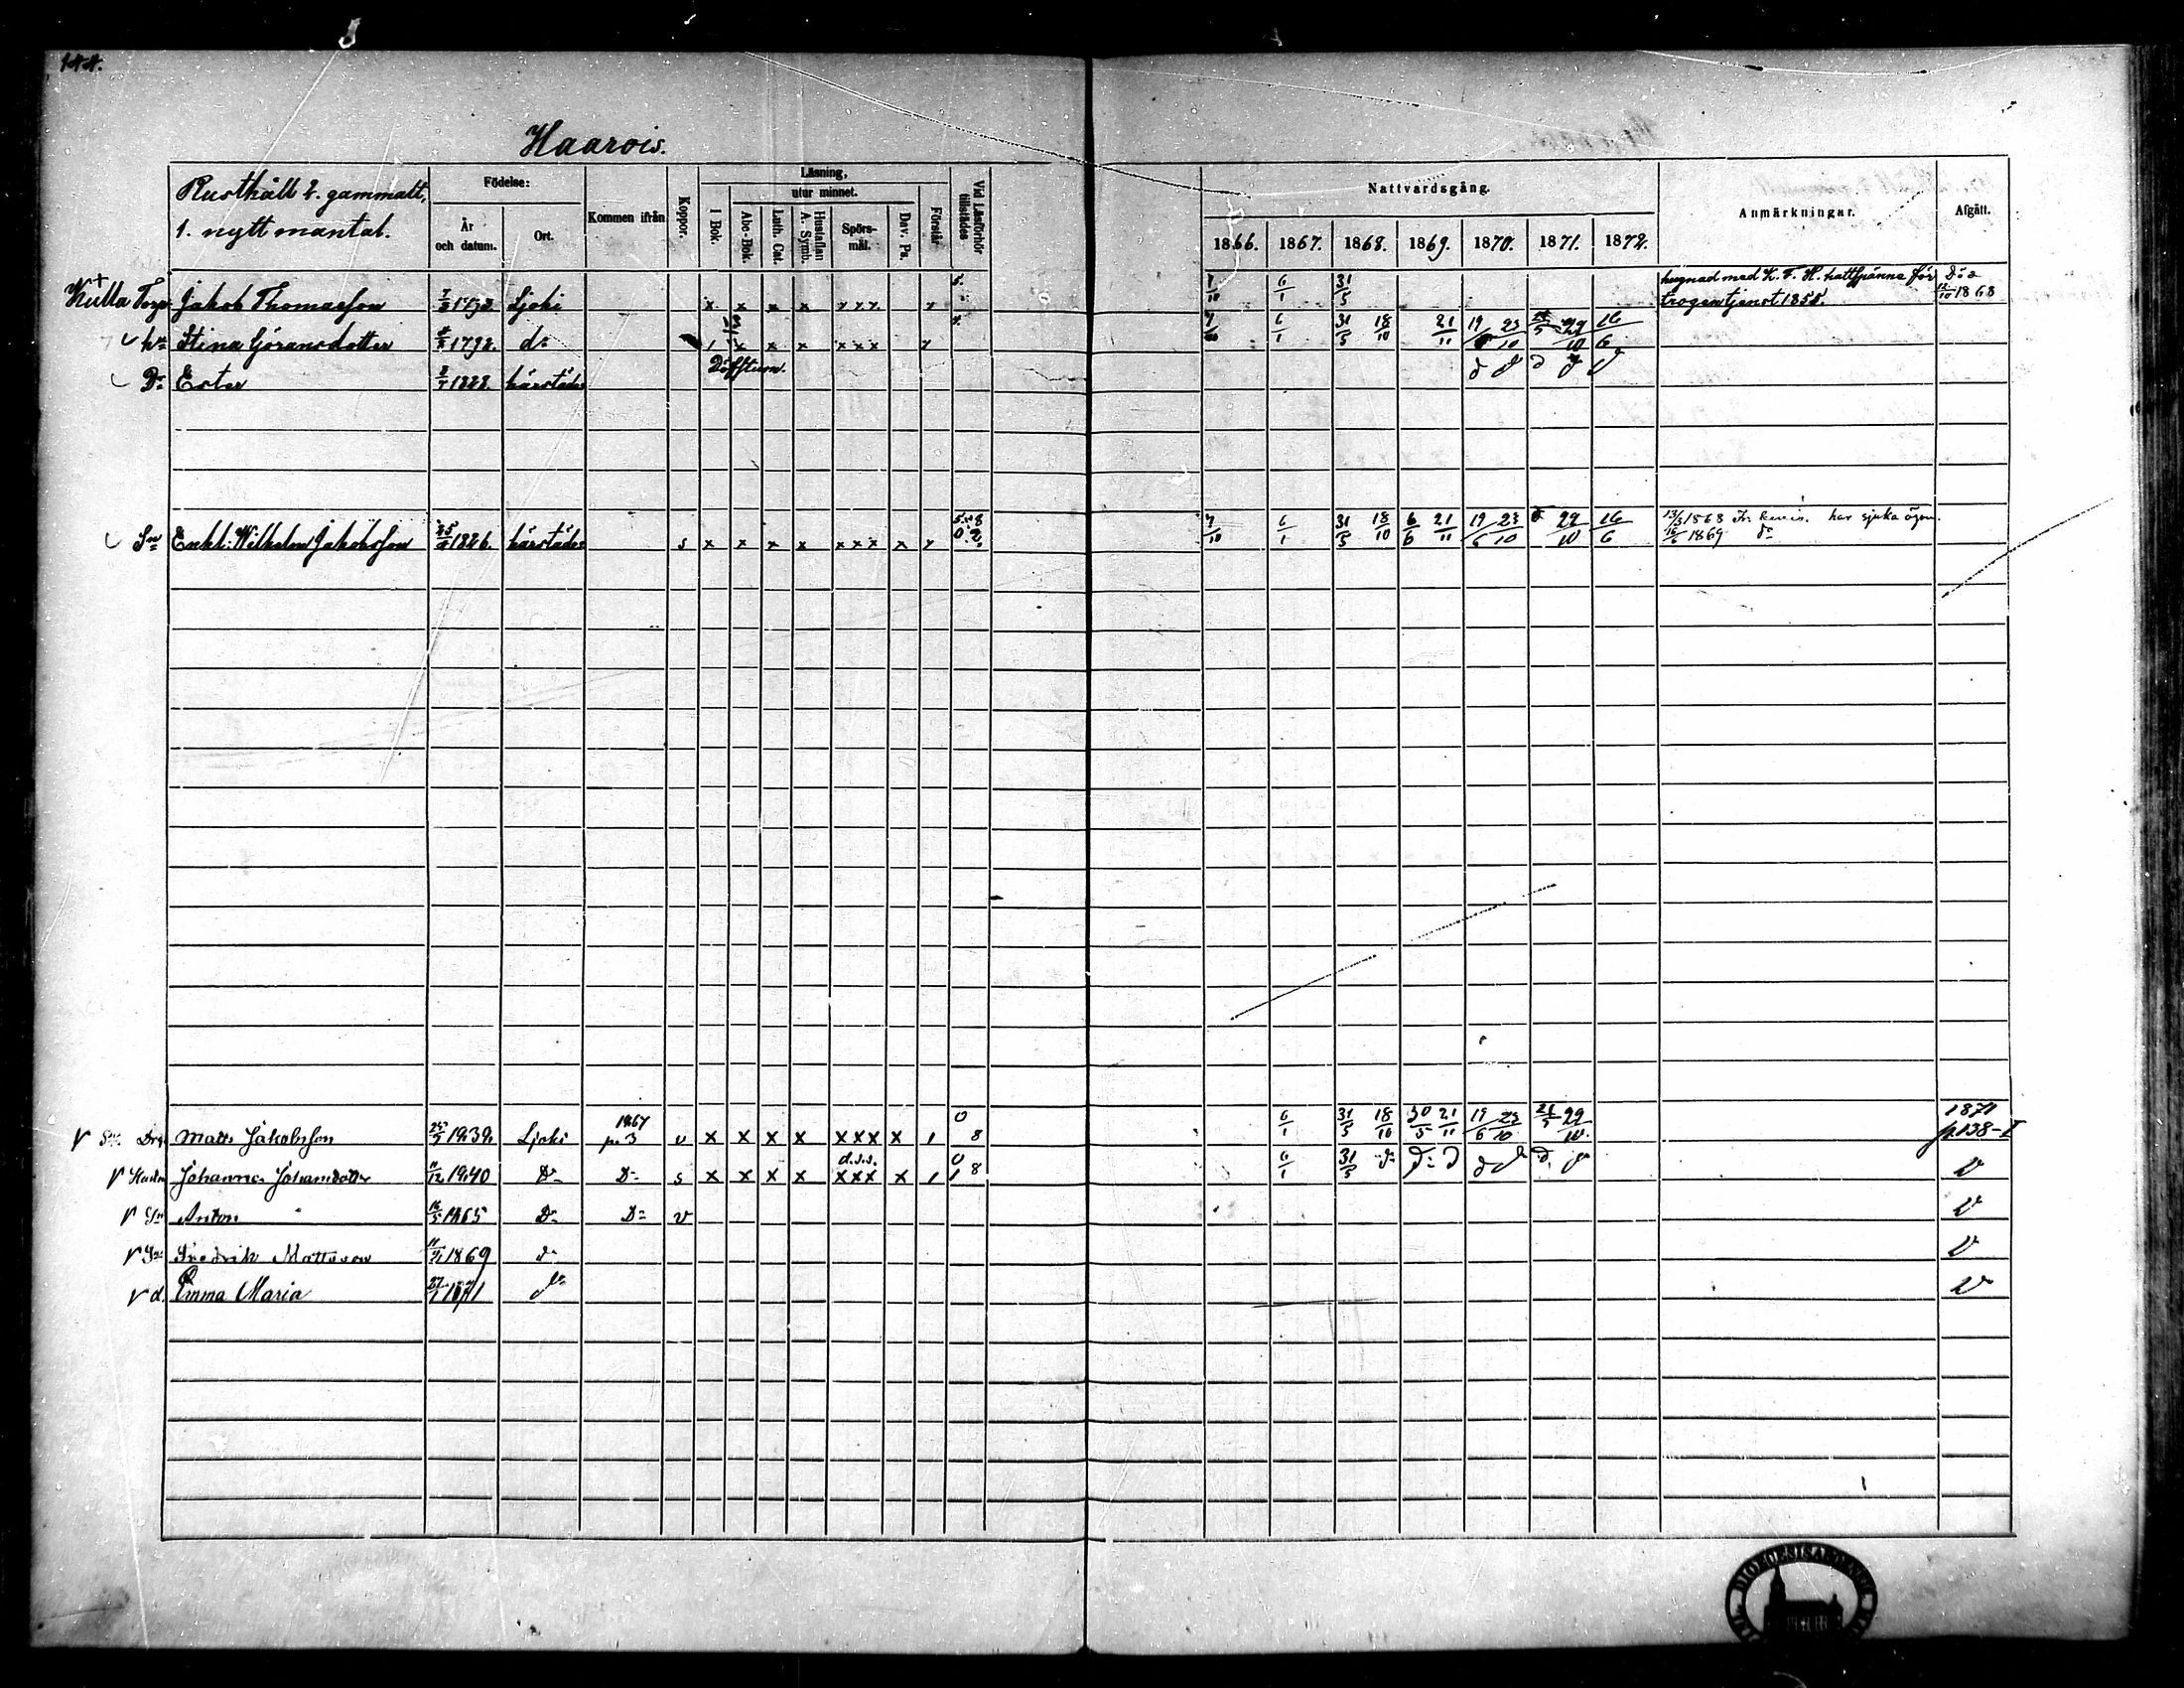 144.
Haarois.
Rusthåll 2. gammalt,
1. nytt mantal.
Födelse:
År och datum.
Ort.
Kommen ifrån
Koppor.
Läsning,
utur minnet.
I Bok.
Abc-Bok.
Luth. Cat.
Hustaflan A. Symb.
Spörsmål.
Dav. Ps.
Förstår
Vid Läsförhör tillstädes
Nattvardsgång.
1866. 1867. 1868. 1869. 1870. 1871. 1872.
Anmärkningar.
Afgått.
Kulla Torp. Jakob Thomasson Ljoki x x x x x x x 5. 7/10 6/1 31/5 hugnad med K. F. H. hattspänne för Död
trogen tjenst 1858. 12/10 1868
hu Stina Göransdotter 1792. do 1 x x x x x x 7/10 6/1 31/5 18/10 21/11 19/6 23/10 29/10 16/6
Dr Ester 1828. härstädes Döfstum.
Sn Enkl: Wilhelm Jakobsson 1826. härstädes s x x x x x x x x 7/10 6/1 31/5 18/10 6/6 21/11 19/6 23/10 29/10 16/6 13/3 1868 har sjuka ögon.
16/6 1869 do
1867 1871
Drg. Matts Jakobsson 1839 Ljoki p. 3 v x x x x x x x x 1 0 8 6/1 31/5 18/10 30/5 21/11 19/6 23/10 29/10. p. 138-I
Hustru Johanna Johansdotter 11/12 1840 Do Do s x x x x x x x x 1 8 6/1 31/5
Sn Anton 16/5 1865 Do Do v
Sn Fredrik Mattsson 1869 do
d. Emma Maria 1871 do